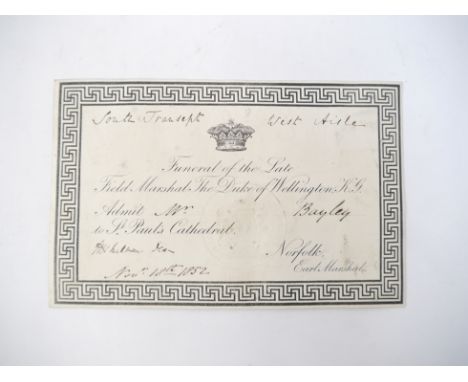 South Transept West Aisle
Funeral of the Late
Field Marshal The Duke of Wellington, K.G.
Admit Mr. Bayley
to St. Paul's Cathedral.
Dean Norfolk,
Novr 18th 1852 Earl Marshal.